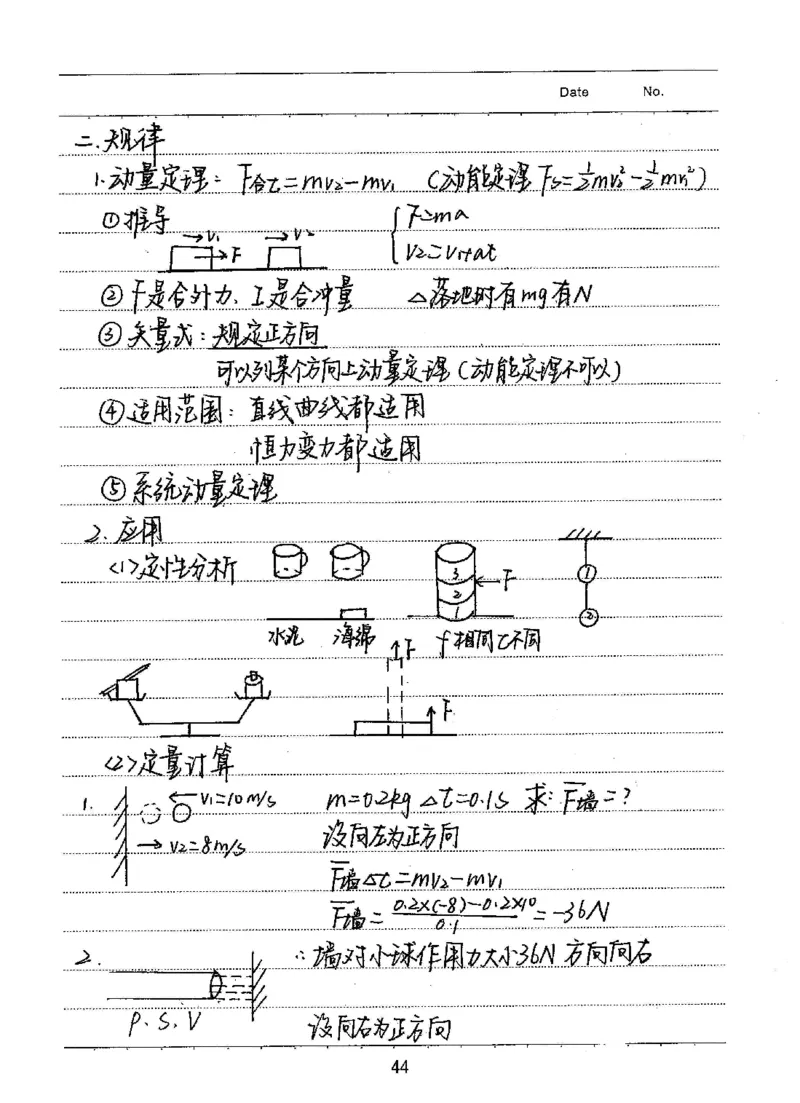 Date No.
二.规律
1.动量定理: F合t=mv₂-mv₁ (动能定理 Fs=½mv₂²-½mv₁²)
①推导 v₁ F v₂ { F=ma
v₂=v₁+at
②F是合外力、I是合冲量 △落地时有mg有N
③矢量式:规定正方向
可以列某个方向上动量定理(动能定理不可以)
④适用范围:直线曲线都适用
恒力变力都适用
⑤系统动量定理
2.应用
<1>定性分析 3 2 1 F ① ②
水泥 海绵 f相同t不同
F F
<2>定量计算
1. v₁=10m/s m=0.2kg △t=0.1s 求:F̅墙=?
v₂=8m/s 设向左为正方向
F̅墙△t=mv₂-mv₁
F̅墙= 0.2×(-8)-0.2×10 / 0.1 =-36N
2. ∴墙对小球作用力大小36N 方向向右
ρ.S.V 设向右为正方向
44